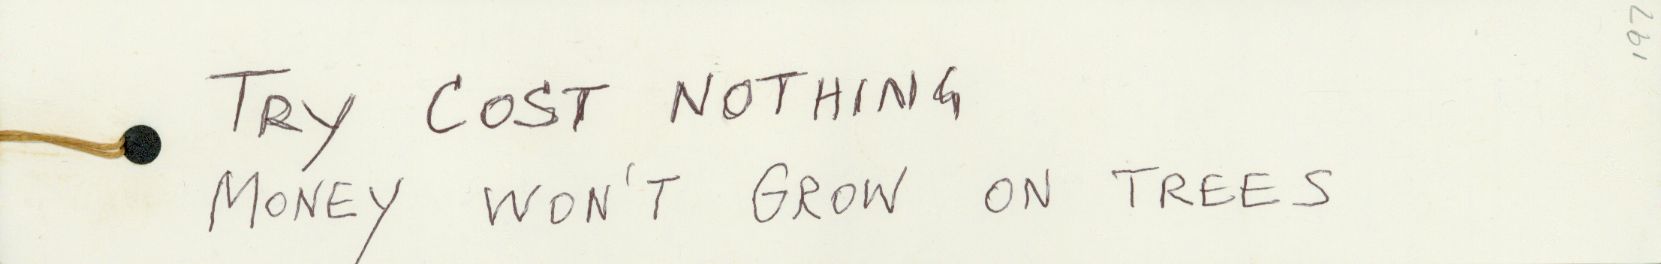 TRY COST NOTHING
MONEY WON'T GROW ON TREES
197